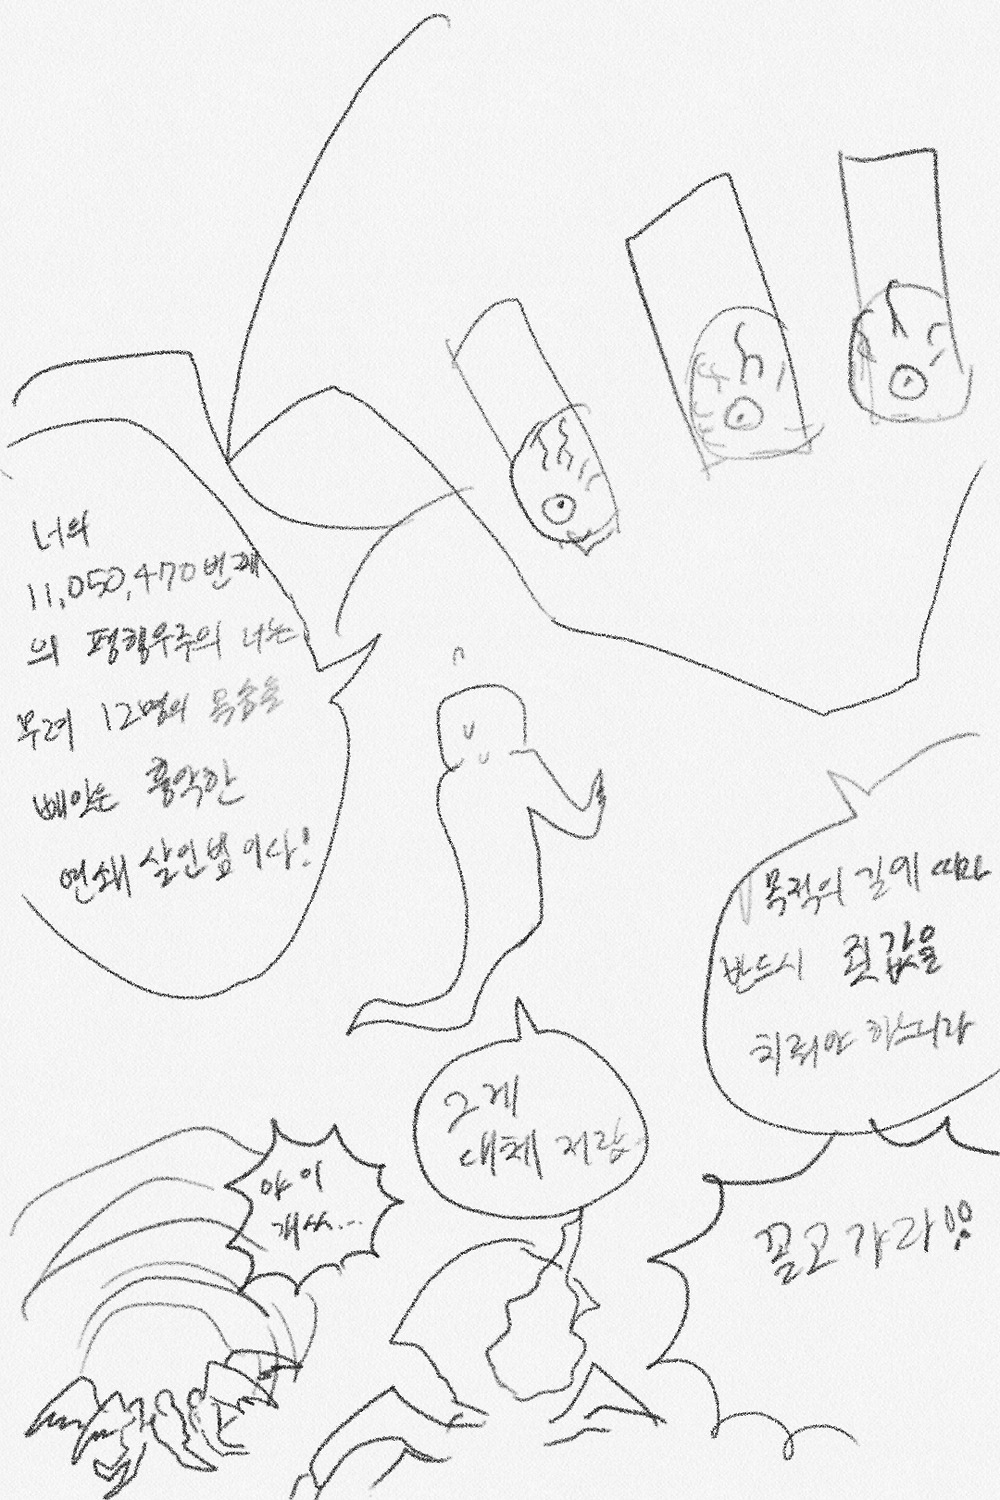 너의
11,050,470번째
의 평행우주의 너는
무려 12명의 목숨을
빼앗은 흉악한
연쇄 살인범이다!
목적의 길에 따라
반드시 죗값을
치뤄야 하느니라
그게
대체 저랑
아이
개씨...
끌고가라잉